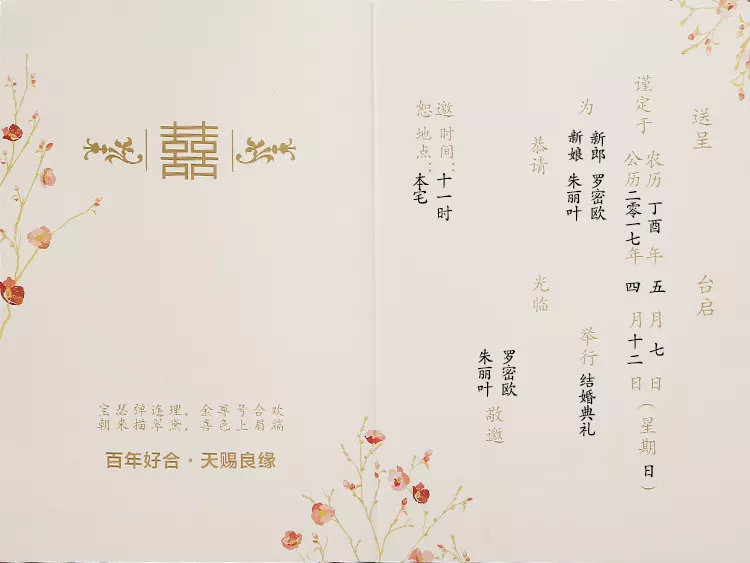 囍
宝瑟弹连理，金尊号合欢
朝来描翠黛，喜色上眉端
百年好合·天赐良缘
送呈 台启
谨定于
农历丁酉年五月七日
公历二零一七年四月十二日
（星期日）
为
新郎 罗密欧
新娘 朱丽叶
举行结婚典礼
恭请 光临
罗密欧
朱丽叶
敬邀
恕邀
时间：十一时
地点：本宅